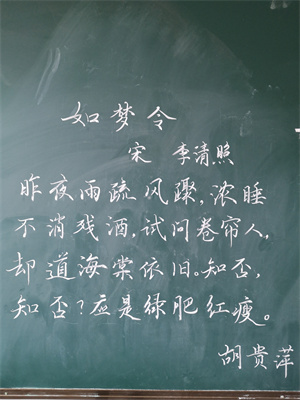 如梦令
宋 李清照
昨夜雨疏风骤,浓睡
不消残酒,试问卷帘人,
却道海棠依旧。知否,
知否?应是绿肥红瘦。
胡贵萍